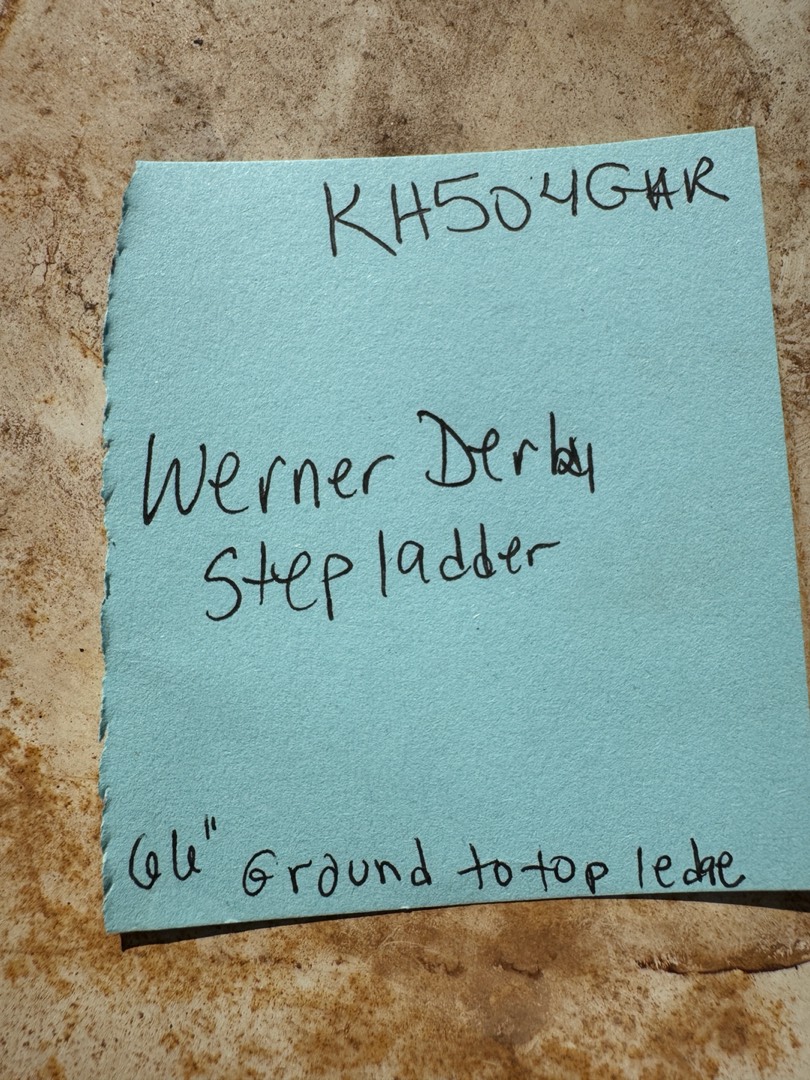 KH504GHR
Werner Derby
Stepladder
66" Ground to top ledge